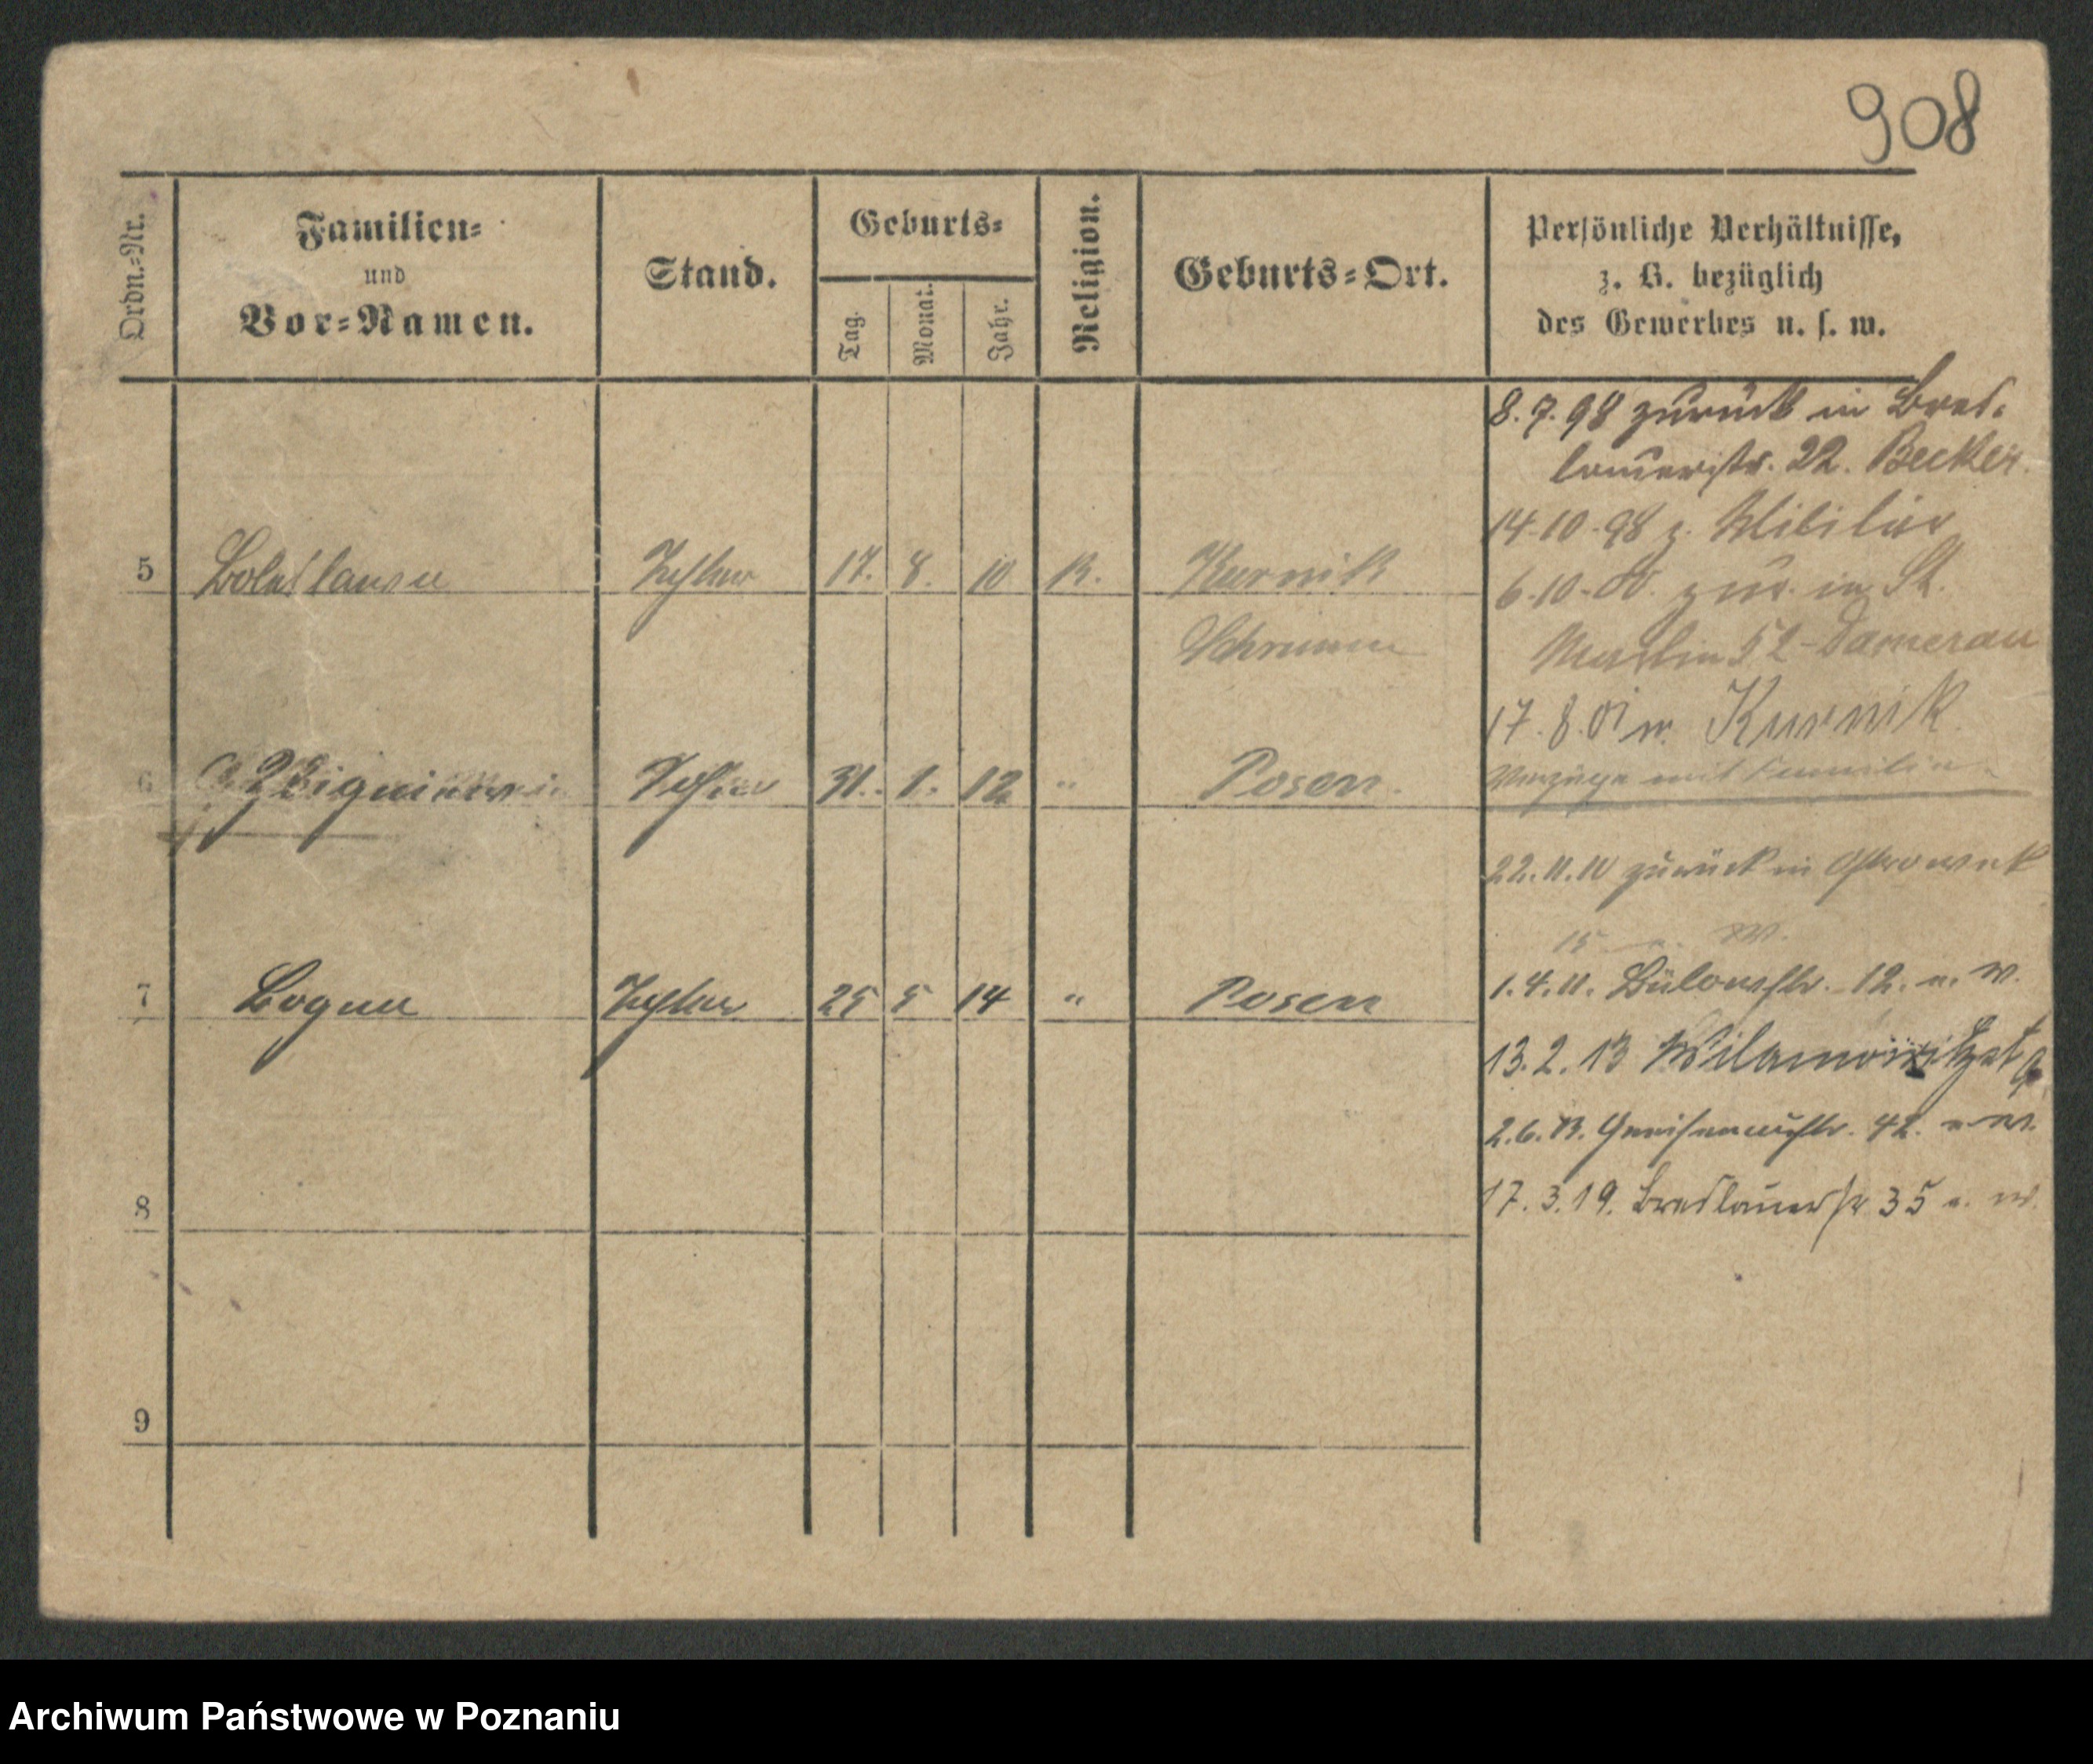 908
Ordn.-Nr.
Familien-
und
Vor-Namen.
Stand.
Geburts-
Tag.
Monat.
Jahr.
Religion.
Geburts-Ort.
Persönliche Verhältnisse,
z. B. bezüglich
des Gewerbes u. s. w.
8.7.98 zurück in Bres-
lauerstr. 22. Becker.
14.10.98 z. Militär
5 Boleslawa Tochter 17. 8. 10 K. Kurnik
6.10.00. zur. in St.
Schrimm
Martin 52 Damerau
17.8.01 n. Kurnik
6 Tochter 31. 1. 12 " Posen.
Verzüge mit Familie
22.11.10 zurück in
15 W.
7 Bogna Tochter 25 5 14 " Posen
1.4.11. Bülowstr. 12. n. W.
13.2.13
2.6.13. Gneisenaustr. 42. W.
17.3.19. Breslauerstr 35 n. W.
8
9
Archiwum Państwowe w Poznaniu